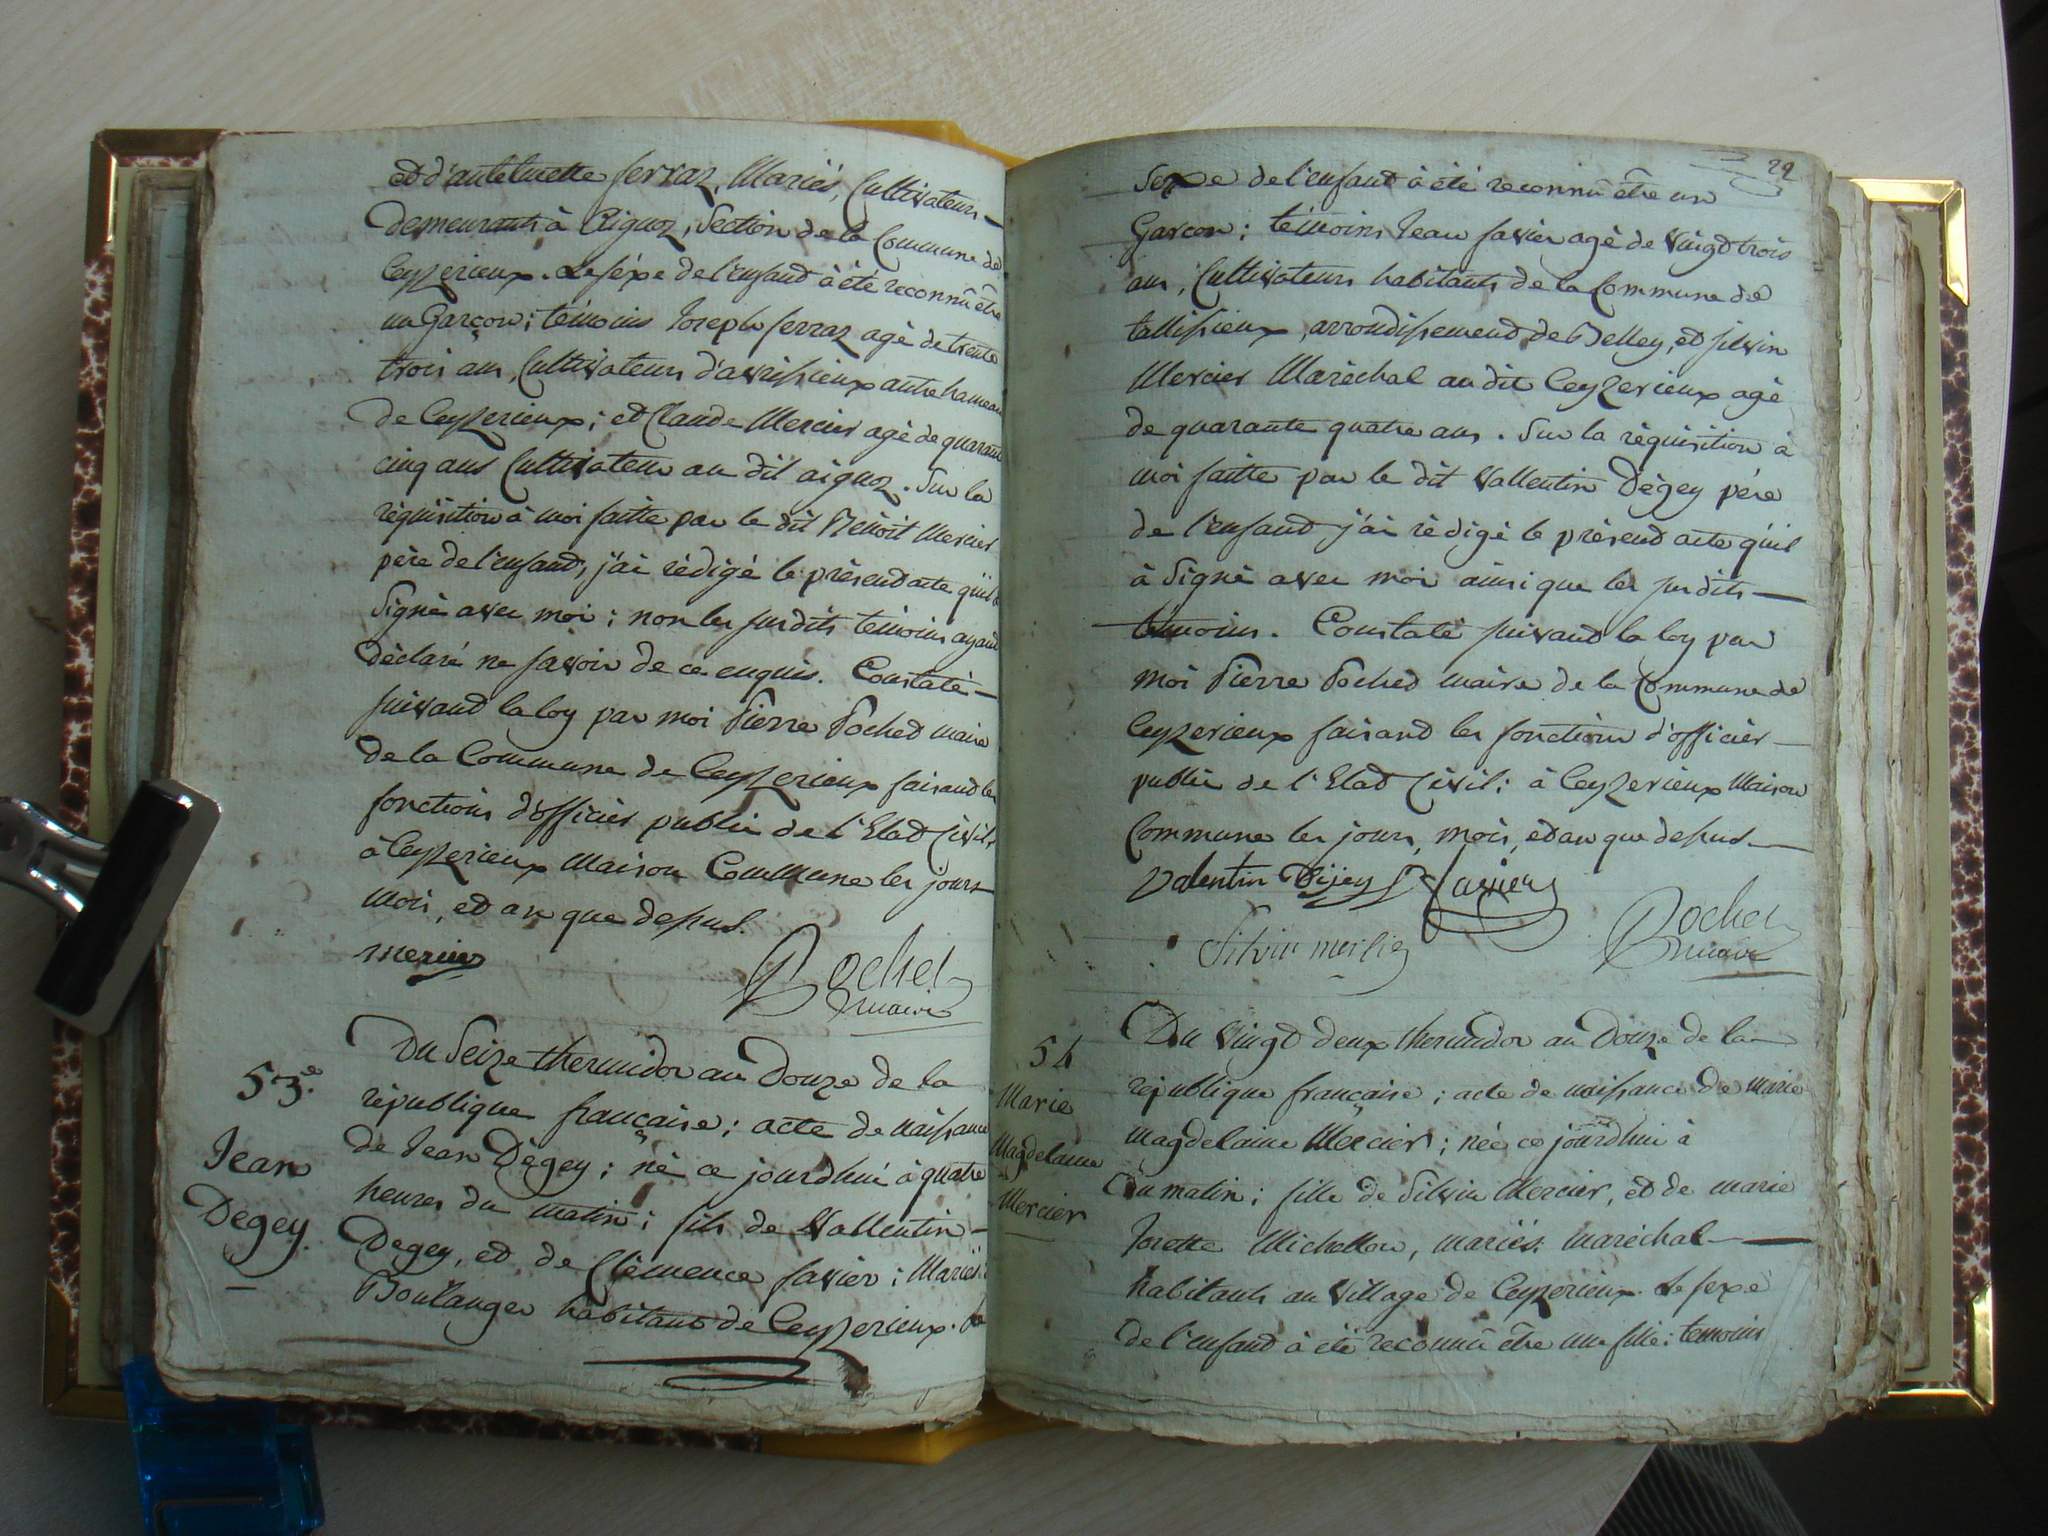 et d'anthelmette ferraz, Mariés, Cultivateurs
demeurants à Aignoz, Section de la Commune de
Ceyzerieux. Le séxe de l'enfant à été reconnû être
un Garçon; témoins Joseph ferraz agé de trente
trois ans, Cultivateurs d'avrissieux autre hameau
de Ceyzerieux; et Claude Mercier agé de quarante
cinq ans Cultivateur au dit aignoz. Sur la
réquisition à moi faitte par le dit Benoit Mercier
père de l'enfant, j'ai rédigé le présent acte qu'il à
Signé avec moi; non les susdits témoins ayant
déclaré ne savoir de ce enquis. Constaté
suivant la loy par moi Pierre Pochet maire
de la Commune de Ceyzerieux faisant les
fonctions d'officier public de l'Etat Civil,
à Ceyzerieux Maison Commune les jours
mois, et an que dessus.
mercier
Pochet
maire
53.e
Jean
Degey.
Du Seize thermidor an Douze de la
république française; acte de naissance
de Jean Dègey; né ce jourd'hui à quatre
heures du matin; fils de Vallentin
Degey, et de Clémence Savier; Mariés
Boulanger habitants de Ceyzerieux. Le
29
Sexe de l'enfant à été reconnû être un
Garçon; témoins Jean Savier agé de vingt trois
ans, Cultivateurs habitants de la Commune de
tallissieux, arrondissement de Belley, et silvin
Mercier Maréchal au dit Ceyzerieux agé
de quarante quatre ans. Sur la réquisition à
moi faitte par le dit Vallentin Dégey pére
de l'enfant j'ai rédigé le présent acte qu'il
à Signé avec moi ainsi que les susdits
témoins. Constaté suivant la loy par
moi Pierre Pochet maire de la Commune de
Ceyzerieux faisant les fonctions d'officier
public de l'Etat Civil; à Ceyzerieux Maison
Commune les jours, mois, et an que dessus.
Valentin Dijey J Savier
Silvin mersier
Pochet
maire
54
Marie
Magdelaine
Mercier
Du Vingt deux thermidor an Douze de la
république française; acte de naissance de marie
magdelaine Mercier; née ce jourd'hui à
du matin; fille de Silvin Mercier, et de marie
Josette Michellou, mariés. maréchal
habitants au village de Ceyzerieux. Le sexe
de l'enfant à été reconnû être une fille: temoins